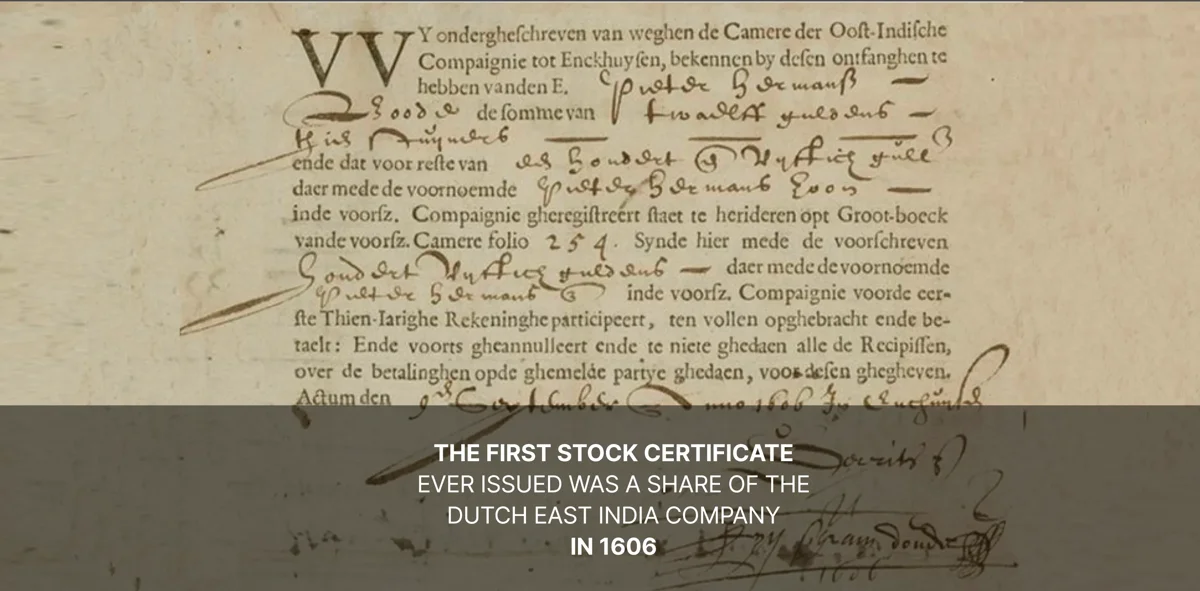 VVY ondergheſchreven van weghen de Camere der Ooſt-Indiſche
Compaignie tot Enckhuyſen, bekennen by deſen ontfanghen te
hebben vanden E. Pieter Hermanß
de ſomme van twaelff guldens
ende dat voor reſte van een hondert vyftich gull
daer mede de voornoemde Pieter Hermans
inde voorſz. Compaignie gheregiſtreert ſtaet te herideren opt Groot-boeck
vande voorſz. Camere folio 254. Synde hier mede de voorſchreven
hondert vyftich guldens daer mede de voornoemde
Pieter Hermans inde voorſz. Compaignie voorde eer-
ſte Thien-Iarighe Rekeninghe participeert, ten vollen opghebracht ende be-
taelt: Ende voorts gheannulleert ende te niete ghedaen alle de Recipiſſen,
over de betalinghen opde ghemelde partye ghedaen, voor deſen ghegheven.
Actum den 9en September Anno 1606
THE FIRST STOCK CERTIFICATE
EVER ISSUED WAS A SHARE OF THE
DUTCH EAST INDIA COMPANY
IN 1606